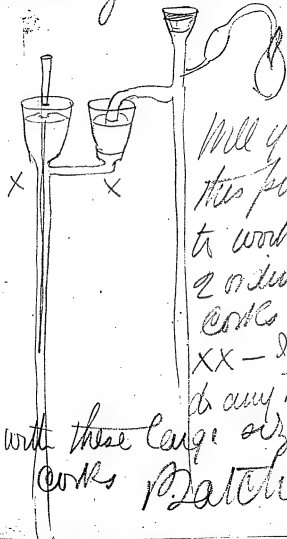 X X
Will y
this p
to work
2 ordin
corks
XX —
do any
with these large siz
corks Batch